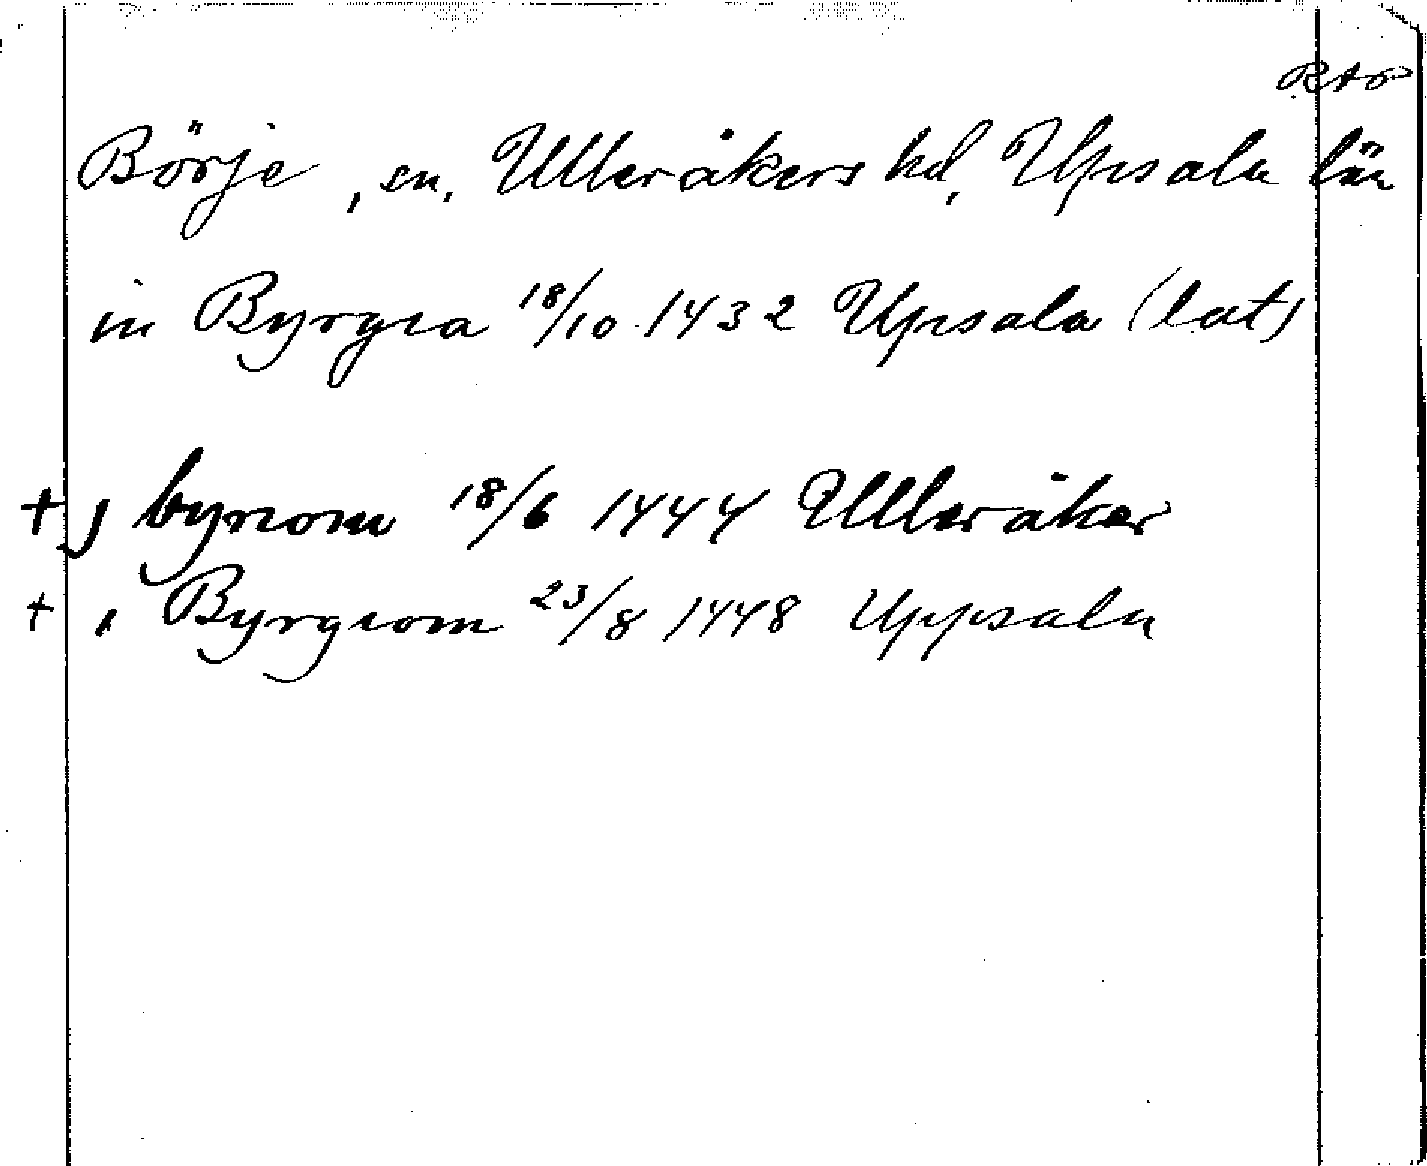 RAP
Börje, sn, Ulleråkers hd, Upsala län
in Byrgia 18/10 1432 Upsala (lat)
+ j byriom 18/6 1444 Ulleråker
+ i Byrgiom 23/8 1448 Uppsala